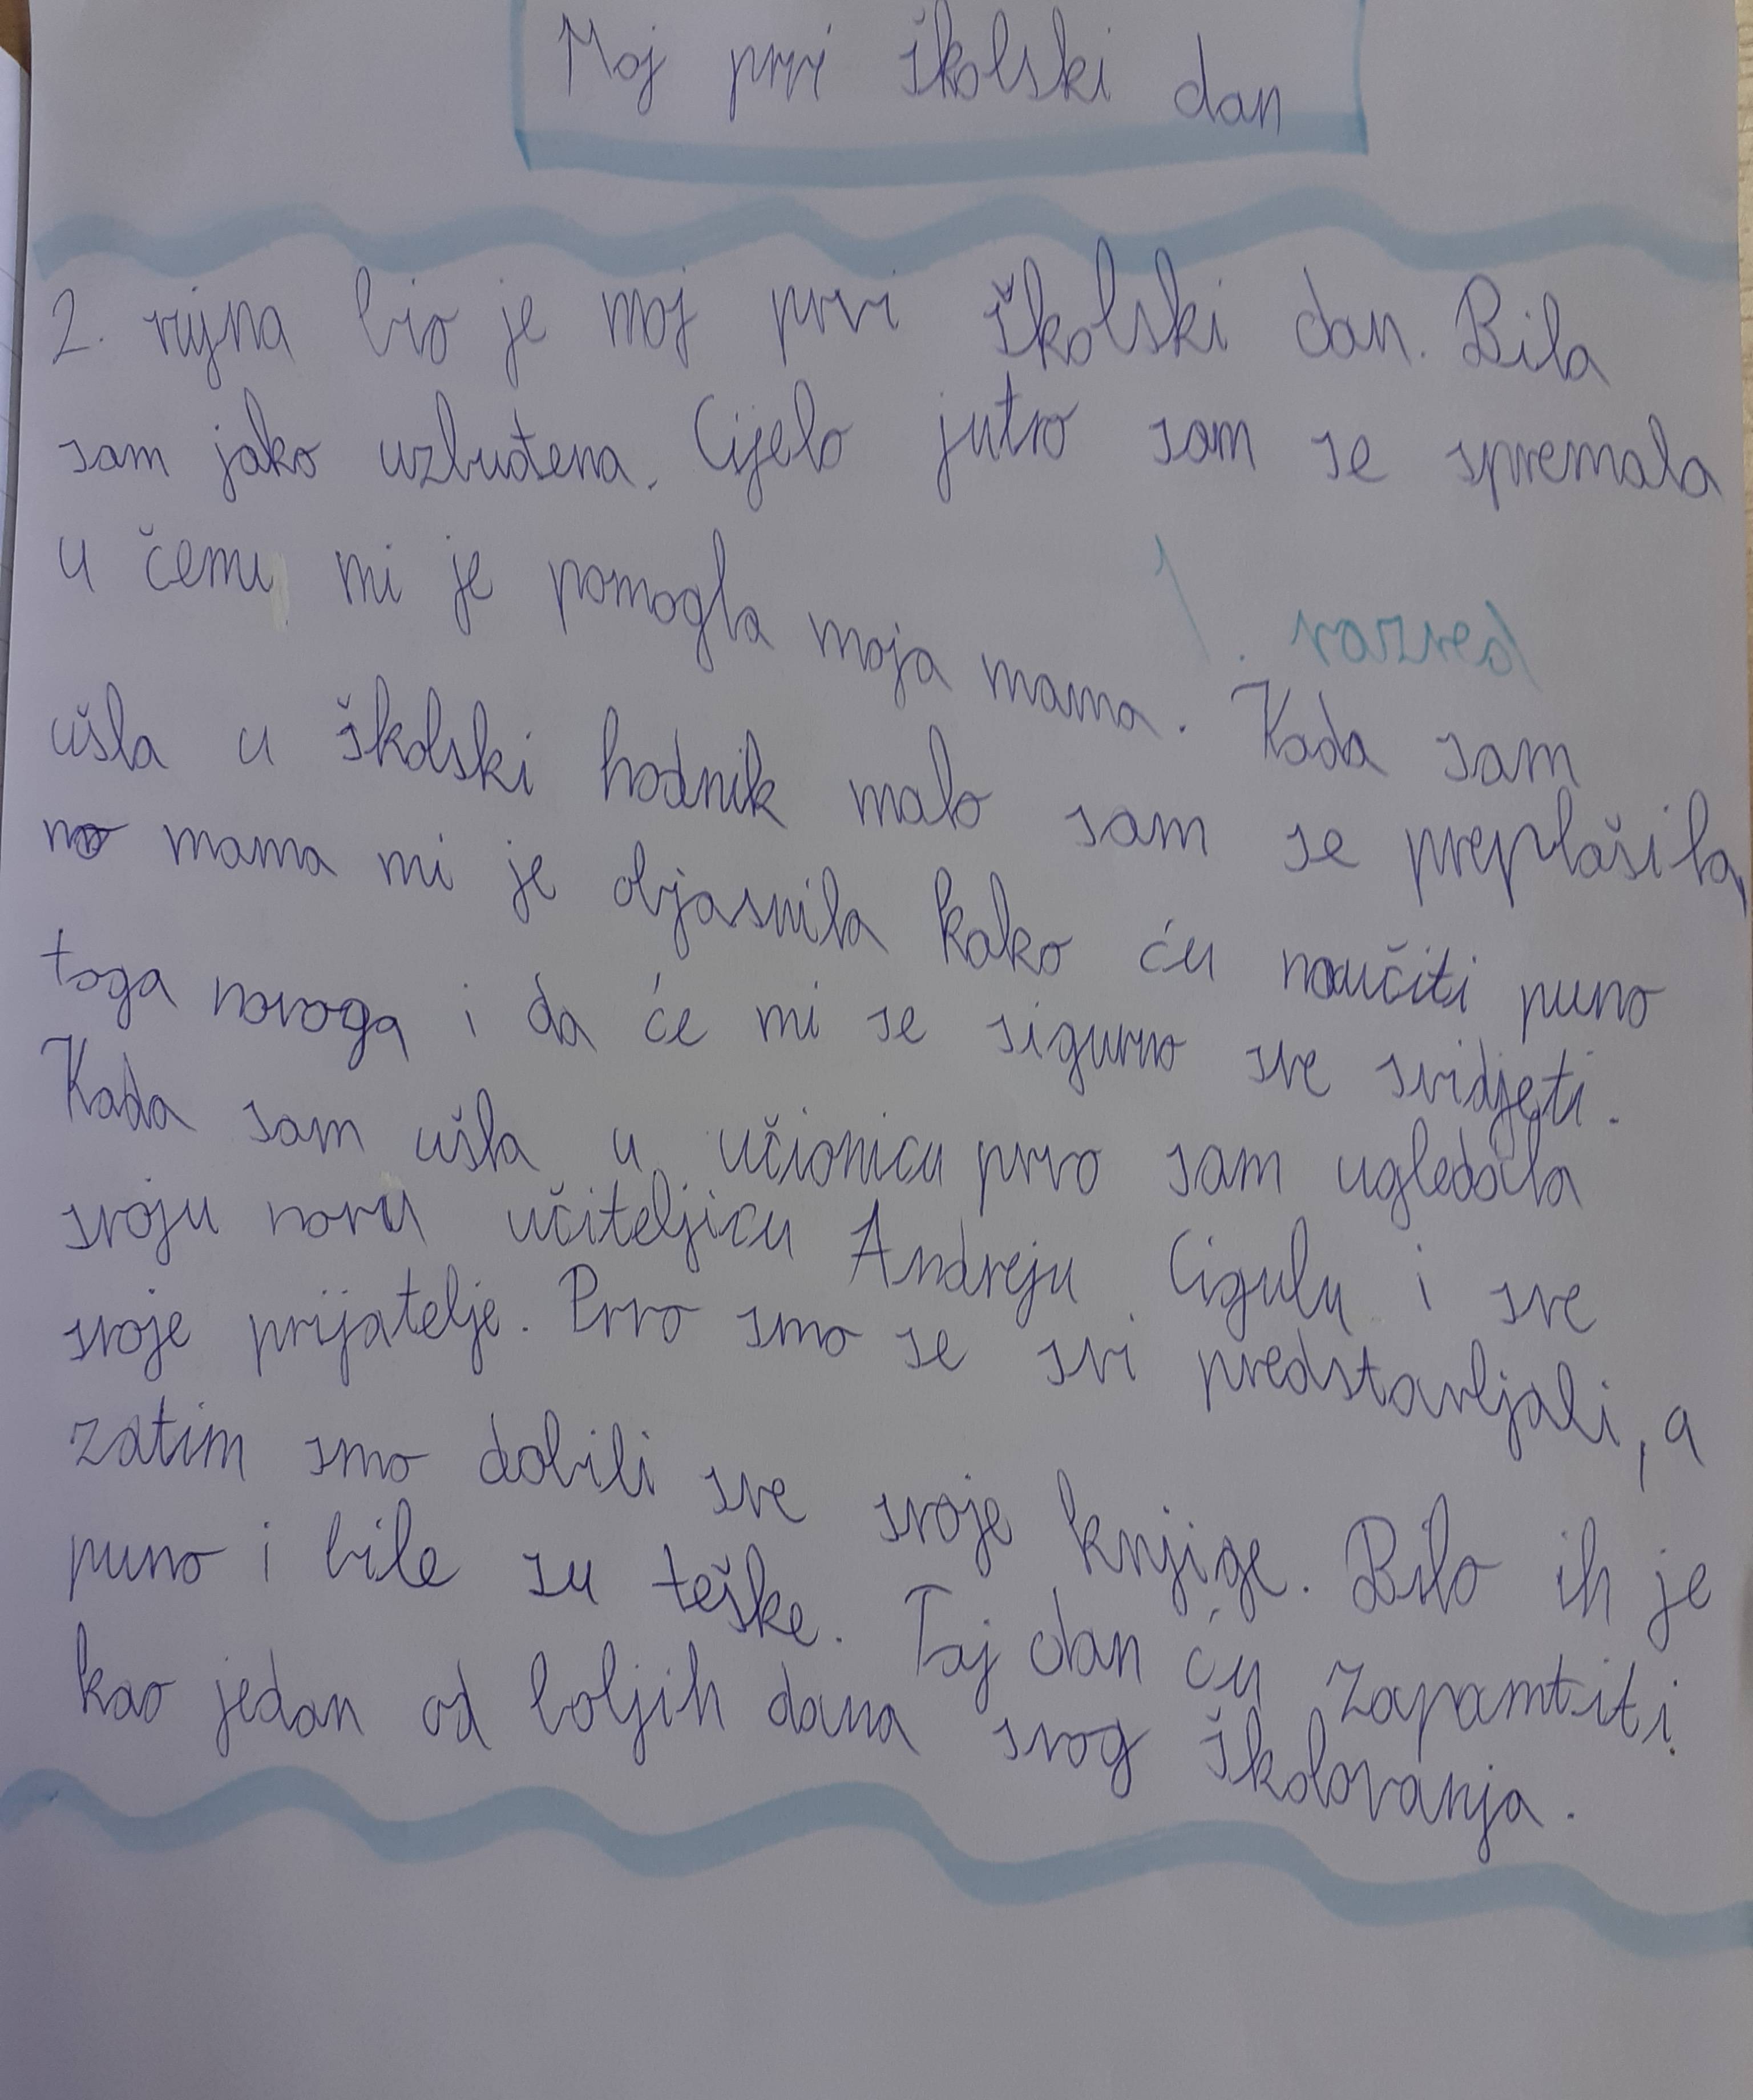 Moj prvi školski dan
2. rujna bio je moj prvi školski dan. Bila
sam jako uzbuđena. Cijelo jutro sam se spremala
u čemu mi je pomogla moja mama. Kada sam
ušla u školski hodnik malo sam se preplašila,
no mama mi je objasnila kako ću naučiti puno
toga novoga i da će mi se sigurno sve svidjeti.
Kada sam ušla u učionicu prvo sam ugledala
svoju novu učiteljicu Andreju Cigulu i sve
svoje prijatelje. Prvo smo se svi predstavljali, a
zatim smo dobili sve svoje knjige. Bilo ih je
puno i bile su teške. Taj dan ću zapamtiti
kao jedan od boljih dana svog školovanja.